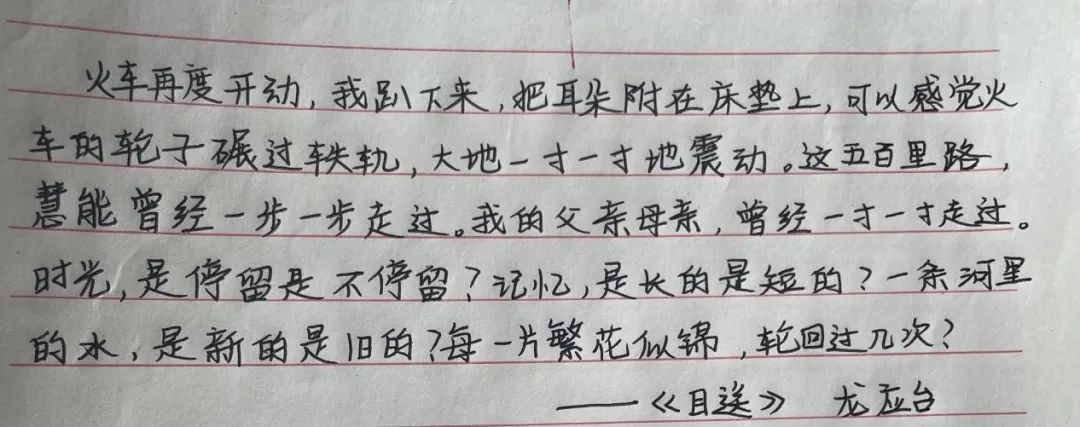 火车再度开动,我趴下来,把耳朵附在床垫上,可以感觉火
车的轮子碾过轶轨,大地一寸一寸地震动。这五百里路,
慧能曾经一步一步走过。我的父亲母亲,曾经一寸一寸走过。
时光,是停留是不停留?记忆,是长的是短的?一条河里
的水,是新的是旧的?每一片繁花似锦,轮回过几次?
——《目送》 龙应台